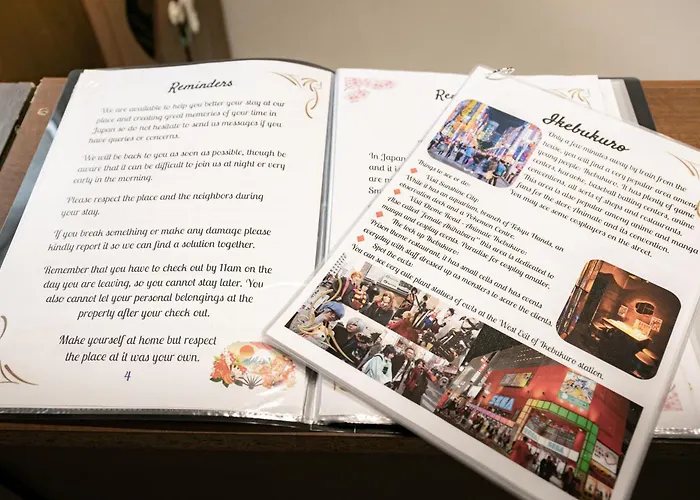 Reminders
We are available to help you better your stay at our
place and creating great memories of your time in
Japan so do not hesitate to send us messages if you
have queries or concerns.
We will be back to you as soon as possible, though be
aware that it can be difficult to join us at night or very
early in the morning.
Please respect the place and the neighbors during
your stay.
If you break something or make any damage please
kindly report it so we can find a solution together.
Remember that you have to check out by 11am on the
day you are leaving, so you cannot stay later. You
also cannot let your personal belongings at the
property after your check out.
Make yourself at home but respect
the place at it was your own.
4
In Japan
and it i
are n
Ikebukuro
Only a few minutes away by train from the
house, you will find a very popular area among
young people: Ikebukuro. It has plenty of game
centers, karaoke, baseball batting centers, anime
This area is also popular among anime and manga
fans for the store Animate and its convention.
You may see some cosplayers on the street.
Things to see or do:
Visit Sunshine City:
While it has an aquarium, a branch of Tokyu Hands, an
observation deck and a Pokemon Center.
Visit Otome Road
Also called "female Akihabara" this area is dedicated to
manga and cosplay events. Paradise for cosplay amater.
The lock up Ikebukuro:
Prison theme restaurant, it has small cells and has events
everyday with staff dressed up as monsters to scare the clients.
Spot the owls:
You can see very cute plant statues of owls at the West Exit of Ikebukuro station.
SEGA